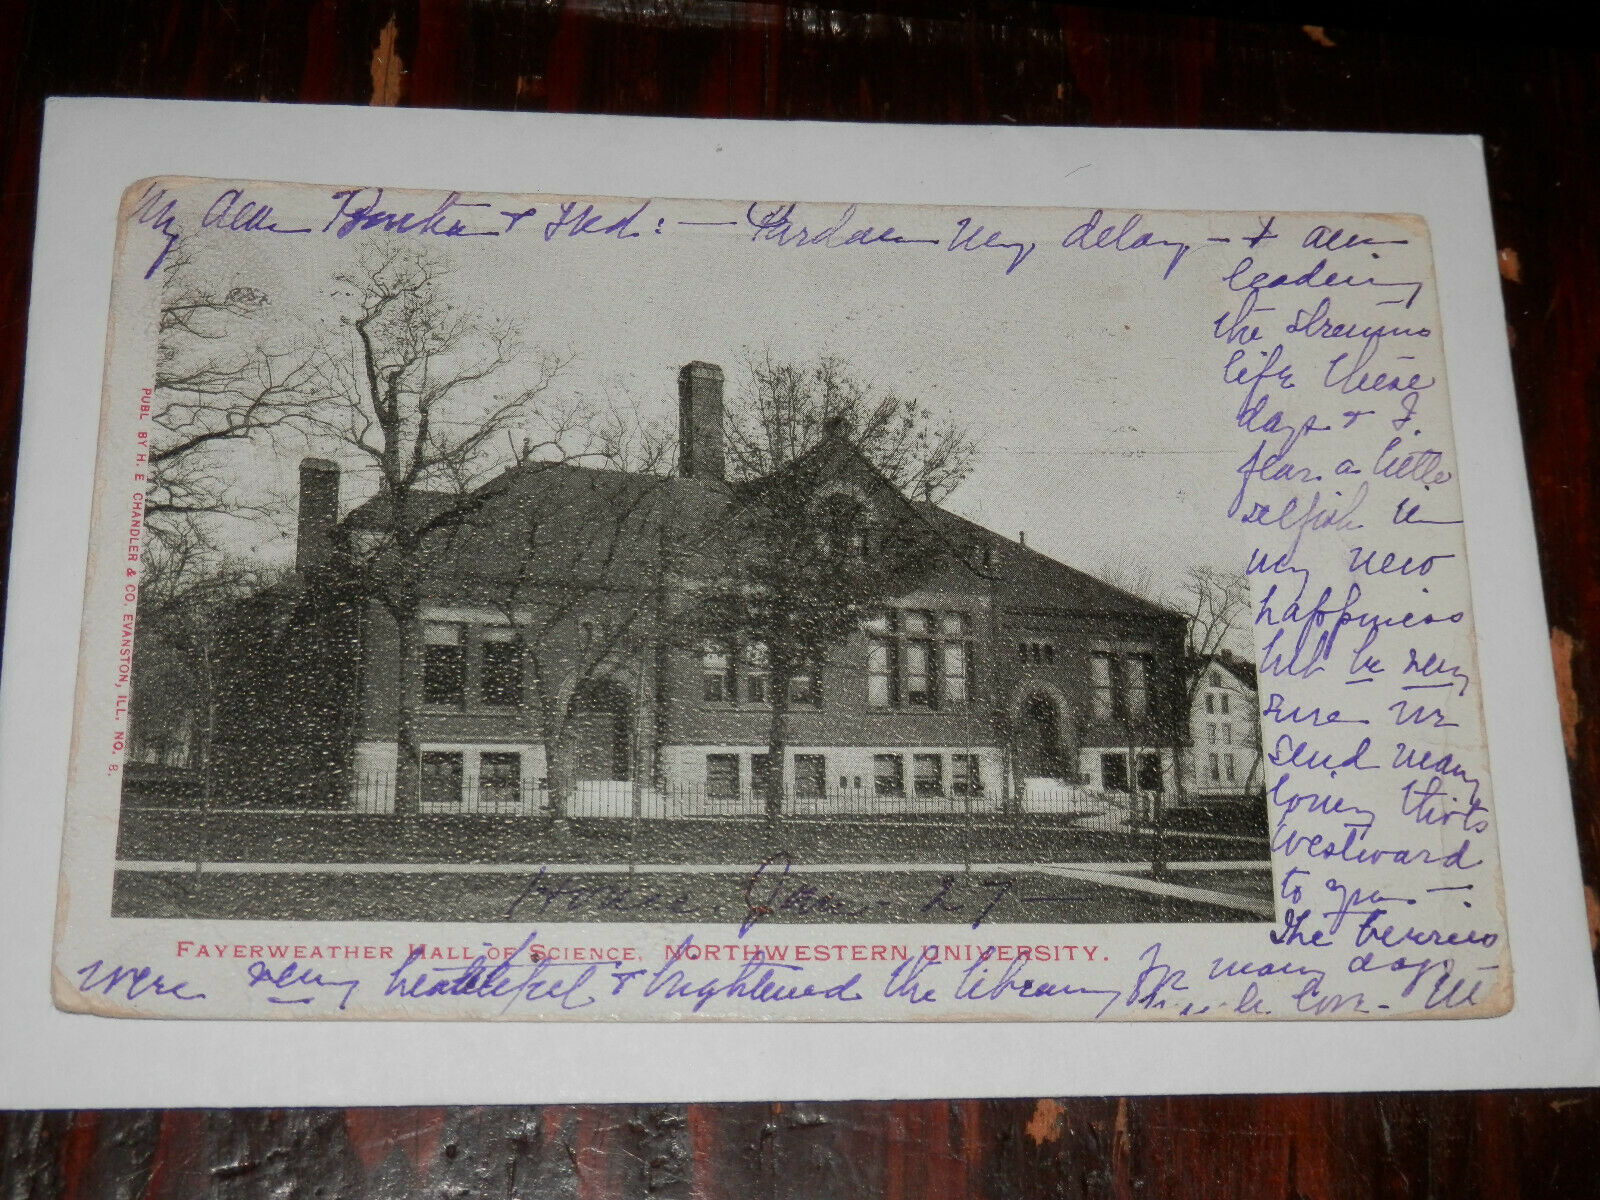 My dear & Fred: — Pardon my delay — I am
leading
the strenuous
life these
days & I
fear a little
selfish in
my new
happiness
but be very
sure we
send many
loving thots
westward
to you —
The berries
were very beautiful & brightened the library for many days
Home. Jan. 27 —
FAYERWEATHER HALL OF SCIENCE, NORTHWESTERN UNIVERSITY.
PUBL. BY H. E. CHANDLER & CO. EVANSTON, ILL. NO. 8.